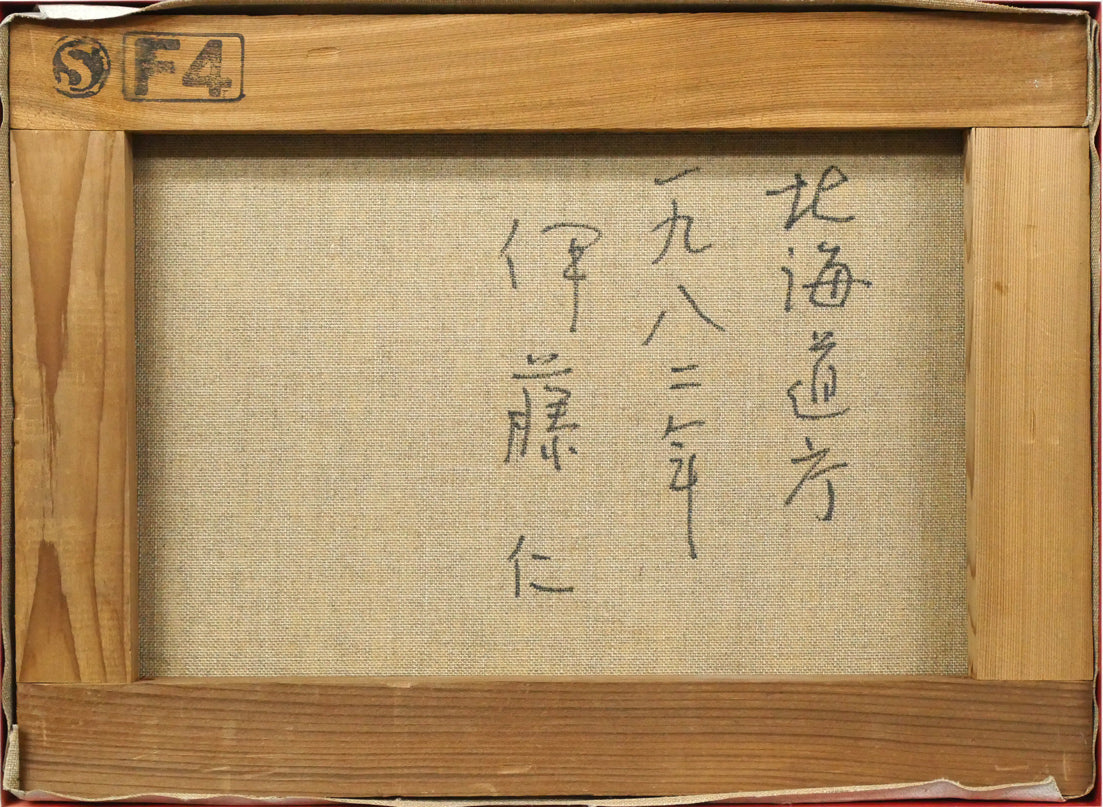 S F4
北海道庁
一九八二年
伊藤仁